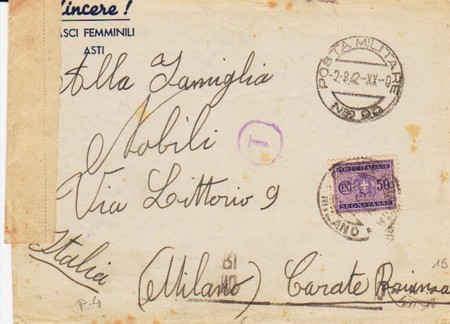 Vincere!
FASCI FEMMINILI
ASTI
POSTA MILITARE
-2.8.42-XX-0
Nº 99
Alla Famiglia
Nobili
1
POSTE ITALIANE
50
SEGNATASSE
Via Littorio 9
Italia
(Milano) Carate Brianza
15
P. 4